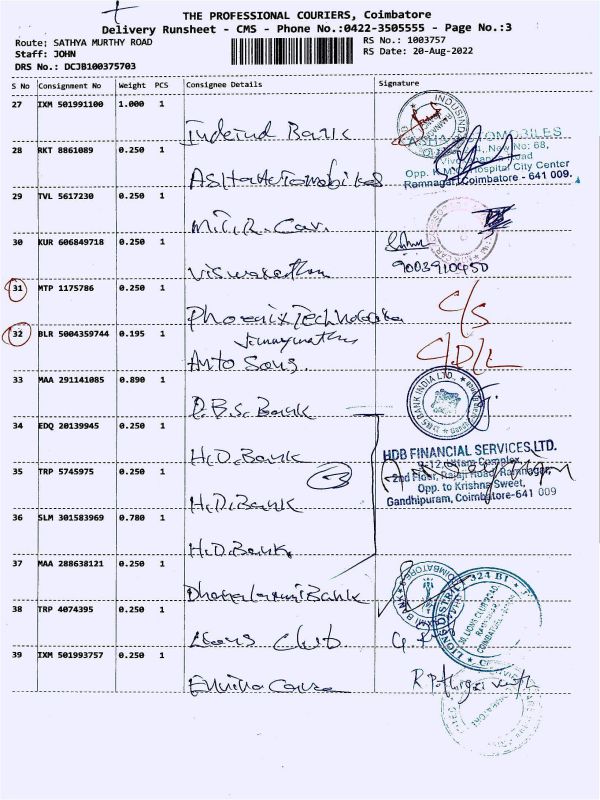 THE PROFESSIONAL COURIERS, Coimbatore
Delivery Runsheet - CMS - Phone No.:0422-3505555 - Page No.:3
Route: SATHYA MURTHY ROAD
RS No.: 1003757
Staff: JOHN
RS Date: 20-Aug-2022
DRS No.: DCJB100375703
S No Consignment No Weight PCS Consignee Details Signature
27 IXM 501991100 1.000 1
Bank
28 RKT 8861089 0.250 1
ASHA AUTOMOBILES
New No: 68,
Opp. K.M.C. Hospital City Center
Ramnagar, Coimbatore - 641 009.
29 TVL 5617230 0.250 1
M.T.R. Car.
30 KUR 606849718 0.250 1
9003910450
31 MTP 1175786 0.250 1
Phoenix Technologies
C/S
32 BLR 5004359744 0.195 1
Anto Sons.
C/D/L
33 MAA 291141085 0.890 1
D.B.S. Bank
DBS BANK INDIA LTD.
34 EDQ 20139945 0.250 1
H.D. Bank
HDB FINANCIAL SERVICES LTD.
2nd Floor, Rajaji Road, Ramnagar,
Opp. to Krishna Sweet,
Gandhipuram, Coimbatore-641 009
35 TRP 5745975 0.250 1
3
H.D. Bank
36 SLM 301583969 0.780 1
H.D. Bank
37 MAA 288638121 0.250 1
Dhanalaxmi Bank
38 TRP 4074395 0.250 1
Lions Club
LIONS DISTRICT 324 B1
39 IXM 501993757 0.250 1